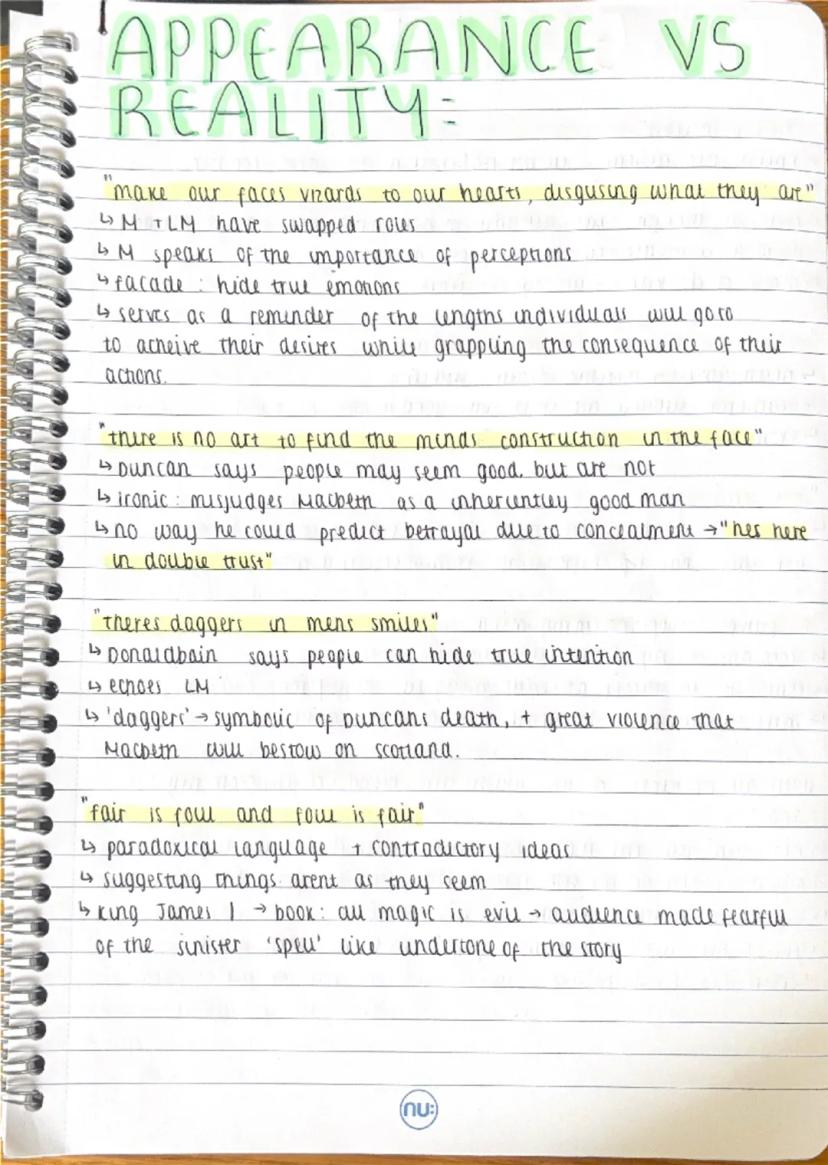 APPEARANCE VS
REALITY:
"make our faces vizards to our hearts, disgusing what they are"
↳ M + LM have swapped roles
↳ M speaks of the importance of perceptions
↳ facade : hide true emotions
↳ serves as a reminder of the lengths individuals will go to
to acheive their desires while grappling the consequence of their
actions.
"there is no art to find the minds construction in the face"
↳ Duncan says people may seem good, but are not
↳ ironic : misjudges Macbeth as a inherentley good man
↳ no way he could predict betrayal due to concealment → "hes here
in double trust"
"theres daggers in mens smiles"
↳ Donaldbain says people can hide true intention
↳ echoes LM
↳ 'daggers' → symbolic of Duncans death, + great violence that
Macbeth will bestow on scotland.
"fair is foul and foul is fair"
↳ paradoxical language + contradictory ideas
↳ suggesting things arent as they seem
↳ King James I → book: all magic is evil → audience made fearful
of the sinister 'spell' like undertone of the story
nu: